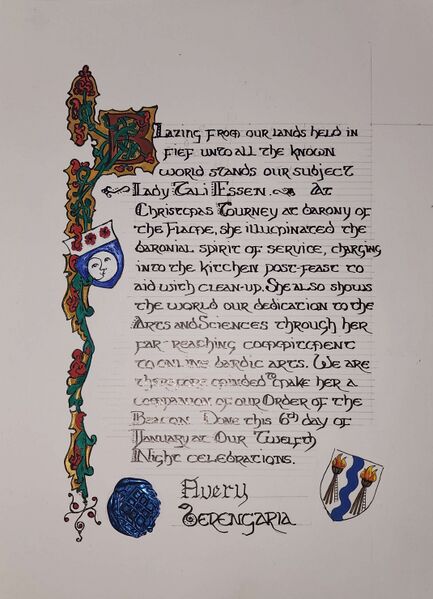 Blazing from our lands held in
fief unto all the known
world stands our subject
Lady Tali Essen. At
Christmas Tourney at barony of
the Flame, she illuminated the
baronial spirit of service, charging
into the kitchen post-feast to
aid with clean-up. She also shows
the world our dedication to the
Arts and Sciences through her
far-reaching commitment
to online bardic arts. We are
therefore minded to make her a
companion of our Order of the
Beacon. Done this 6th day of
January at Our Twelfth
Night celebrations.
Avery
Berengaria